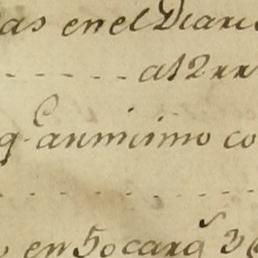 as en el Diari
- - - - - - al 2 rr
q. animismo co
- - - - - - - -
en 50 carg.s